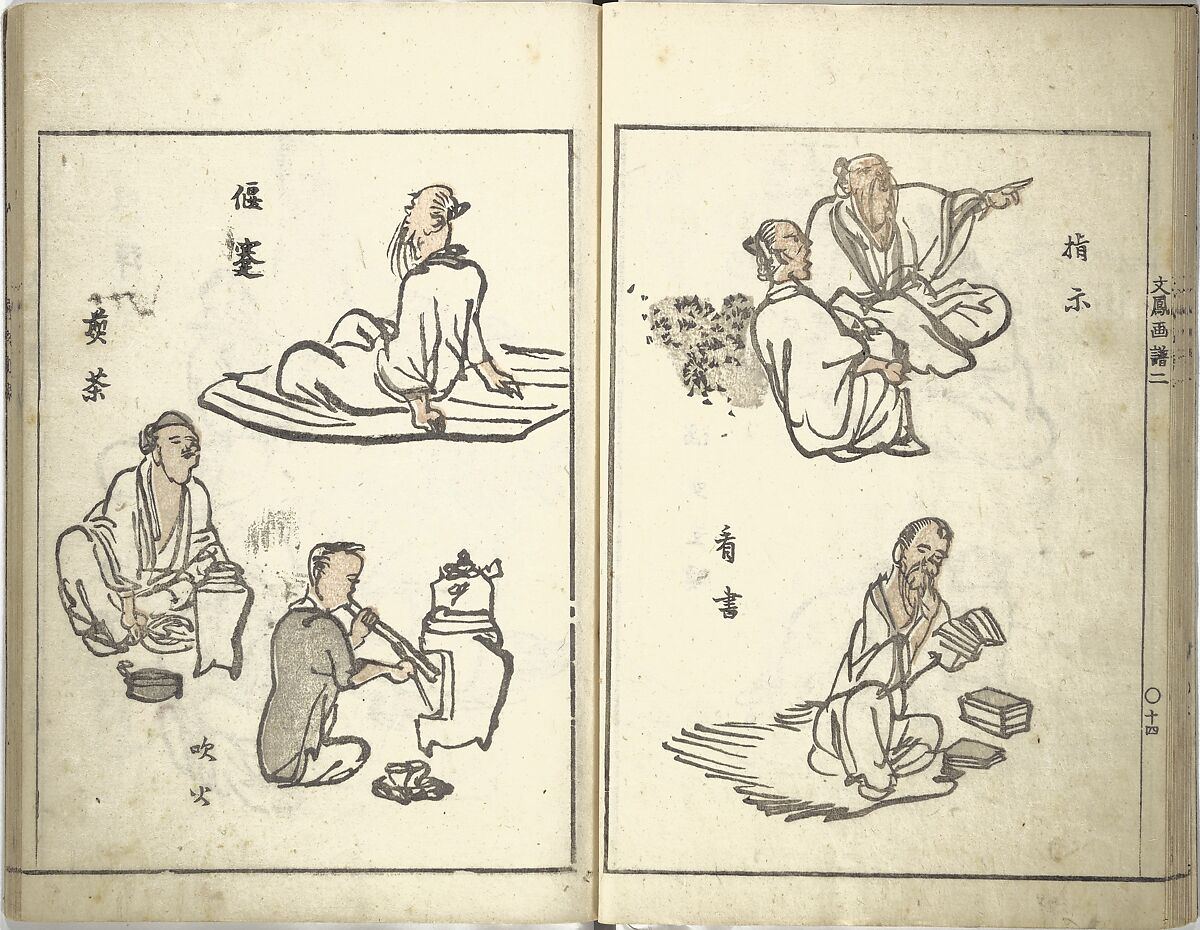 文鳳画譜二
〇十四
指示
看書
偃蹇
煎茶
吹火